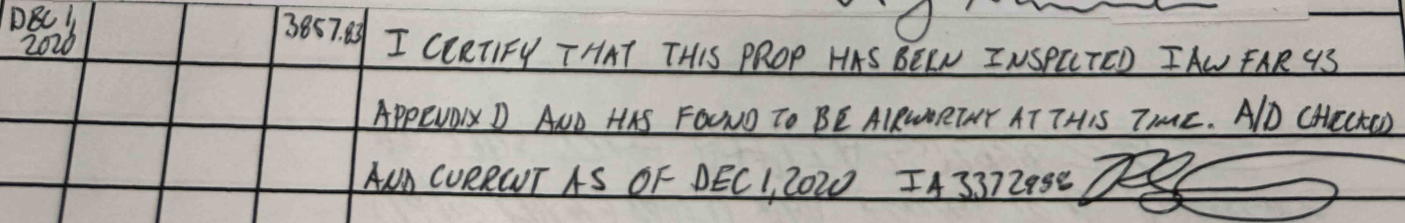 DEC 1, 3857.83 I CERTIFY THAT THIS PROP HAS BEEN INSPECTED IAW FAR 43
2020
APPENDIX D AND HAS FOUND TO BE AIRWORTHY AT THIS TIME. A/D CHECKED
AND CURRENT AS OF DEC 1, 2020 IA 3372998